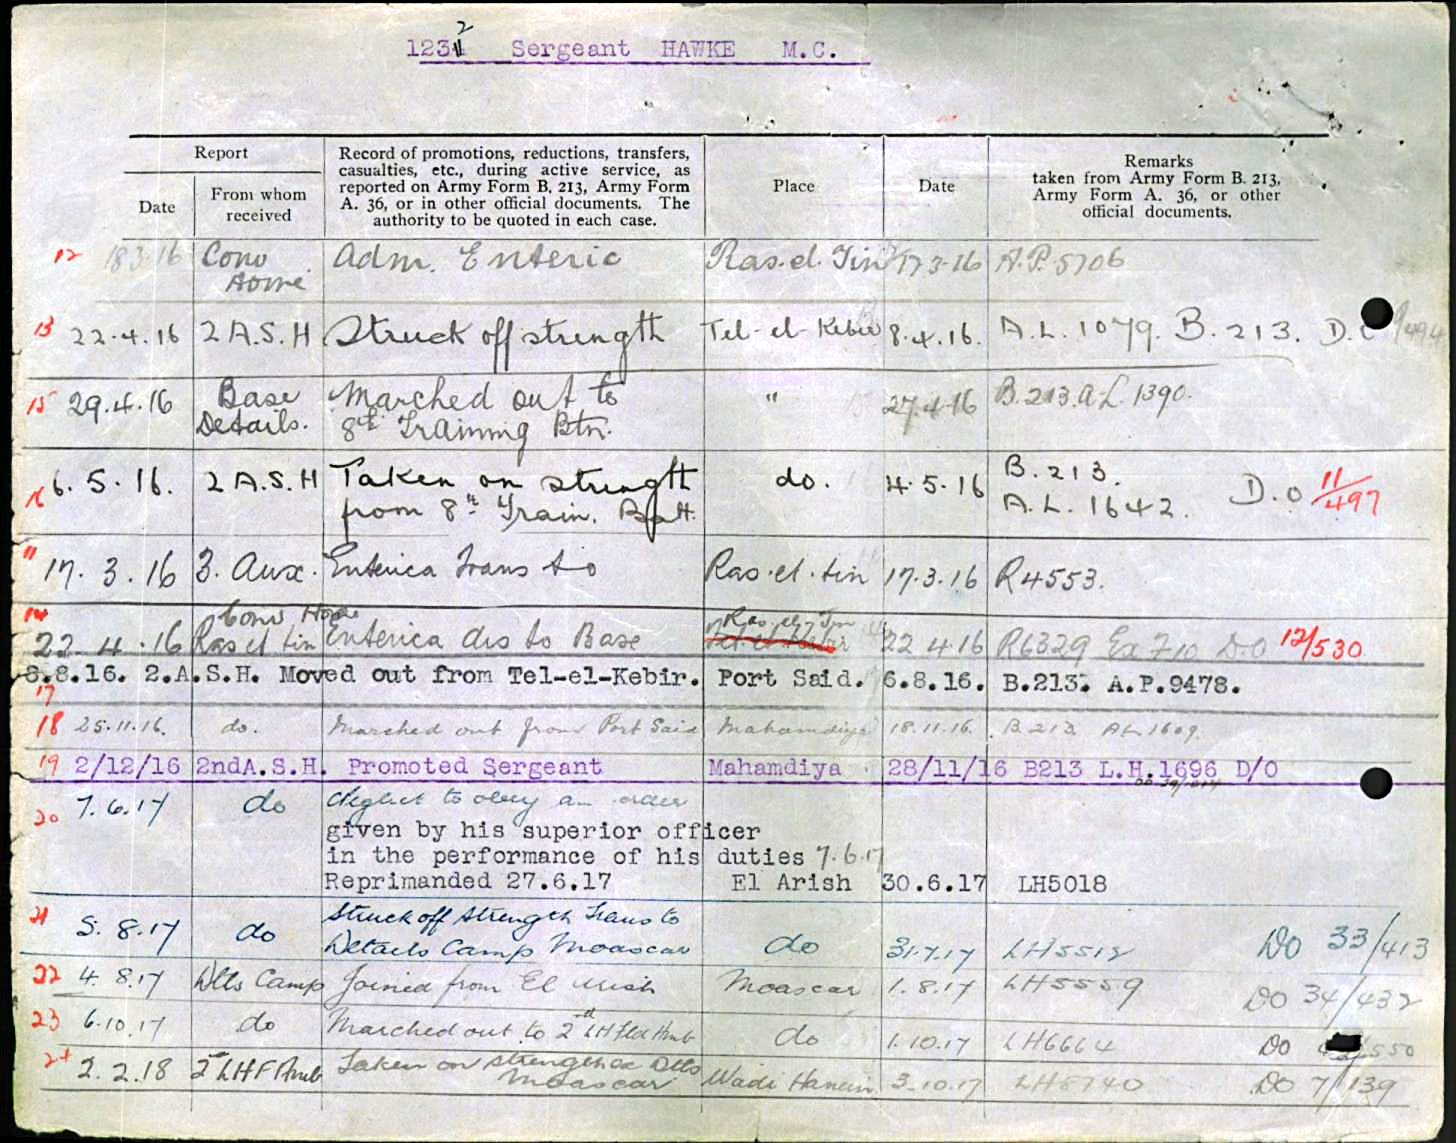 1232 Sergeant HAWKE M.C.
Report
Date
From whom received
Record of promotions, reductions, transfers,
casualties, etc., during active service, as
reported on Army Form B. 213, Army Form
A. 36, or in other official documents. The
authority to be quoted in each case.
Place
Date
Remarks
taken from Army Form B. 213,
Army Form A. 36, or other
official documents.
12 18.3.16 Conv Adm. Enteric Ras.el.Tin 17.3.16 A.P. 5706
Home
13 22.4.16 2 A.S.H Struck off strength Tel-el-Kebir 8.4.16. A.L. 1079. B. 213.
15 29.4.16 Base Marched out to " 27.4.16 B.213.A.L. 1390.
Details. 8th Training Btn.
16 6.5.16. 2 A.S.H Taken on strength do. 4.5.16 B.213. D.O 11/497
from 8th Train. Batt. A.L. 1642.
" 17.3.16 3. Aux. Enterica trans to Ras.el.tin 17.3.16 R4553.
14 Conv Home Ras el Tin
22.4.16 Ras el tin Enterica dis to Base 22 4.16 R6329 D.O 12/530
8.8.16. 2.A.S.H. Moved out from Tel-el-Kebir. Port Said. 6.8.16. B.213. A.P.9478.
17
18 25.11.16. do. Marched out from Port Said Mahamdiya 18.11.16. B 213 AL1609.
19 2/12/16 2ndA.S.H. Promoted Sergeant Mahamdiya 28/11/16 B213 L.H.1696 D/O
20 7.6.17 do Neglect to obey an order
given by his superior officer
in the performance of his duties 7.6.17
Reprimanded 27.6.17 El Arish 30.6.17 LH5018
21 5.8.17 do Struck off strength Trans to
Details Camp Moascar do 31.7.17 LH5512 DO 33/413
22 4.8.17 Dtls Camp Joined from El Arish Moascar 1.8.17 LH5559 DO 34/432
23 6.10.17 do Marched out to 2nd LH Fld Amb do 1.10.17 LH6664 DO
24 2.2.18 2nd LHF Amb Taken on strength ex Dtls
Moascar Wadi Hanein 3.10.17 LH8740 DO 7/139